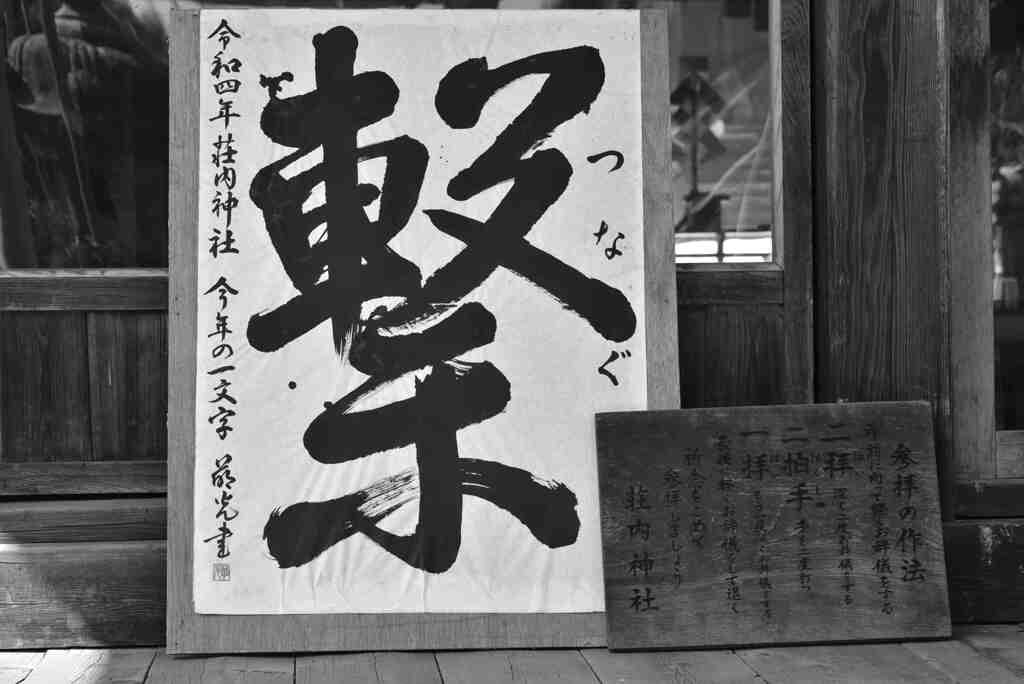 繋
つなぐ
令和四年荘内神社 今年の一文字 萌光書
参拝の作法
神前に向て軽くお辞儀をする
二拝 深く二度お辞儀をする
二拍手 手を二度打つ
一拝 もう一度深くお辞儀をする
最後に軽くお辞儀をして退く
祈念をこめて
参拝しましょう
荘内神社